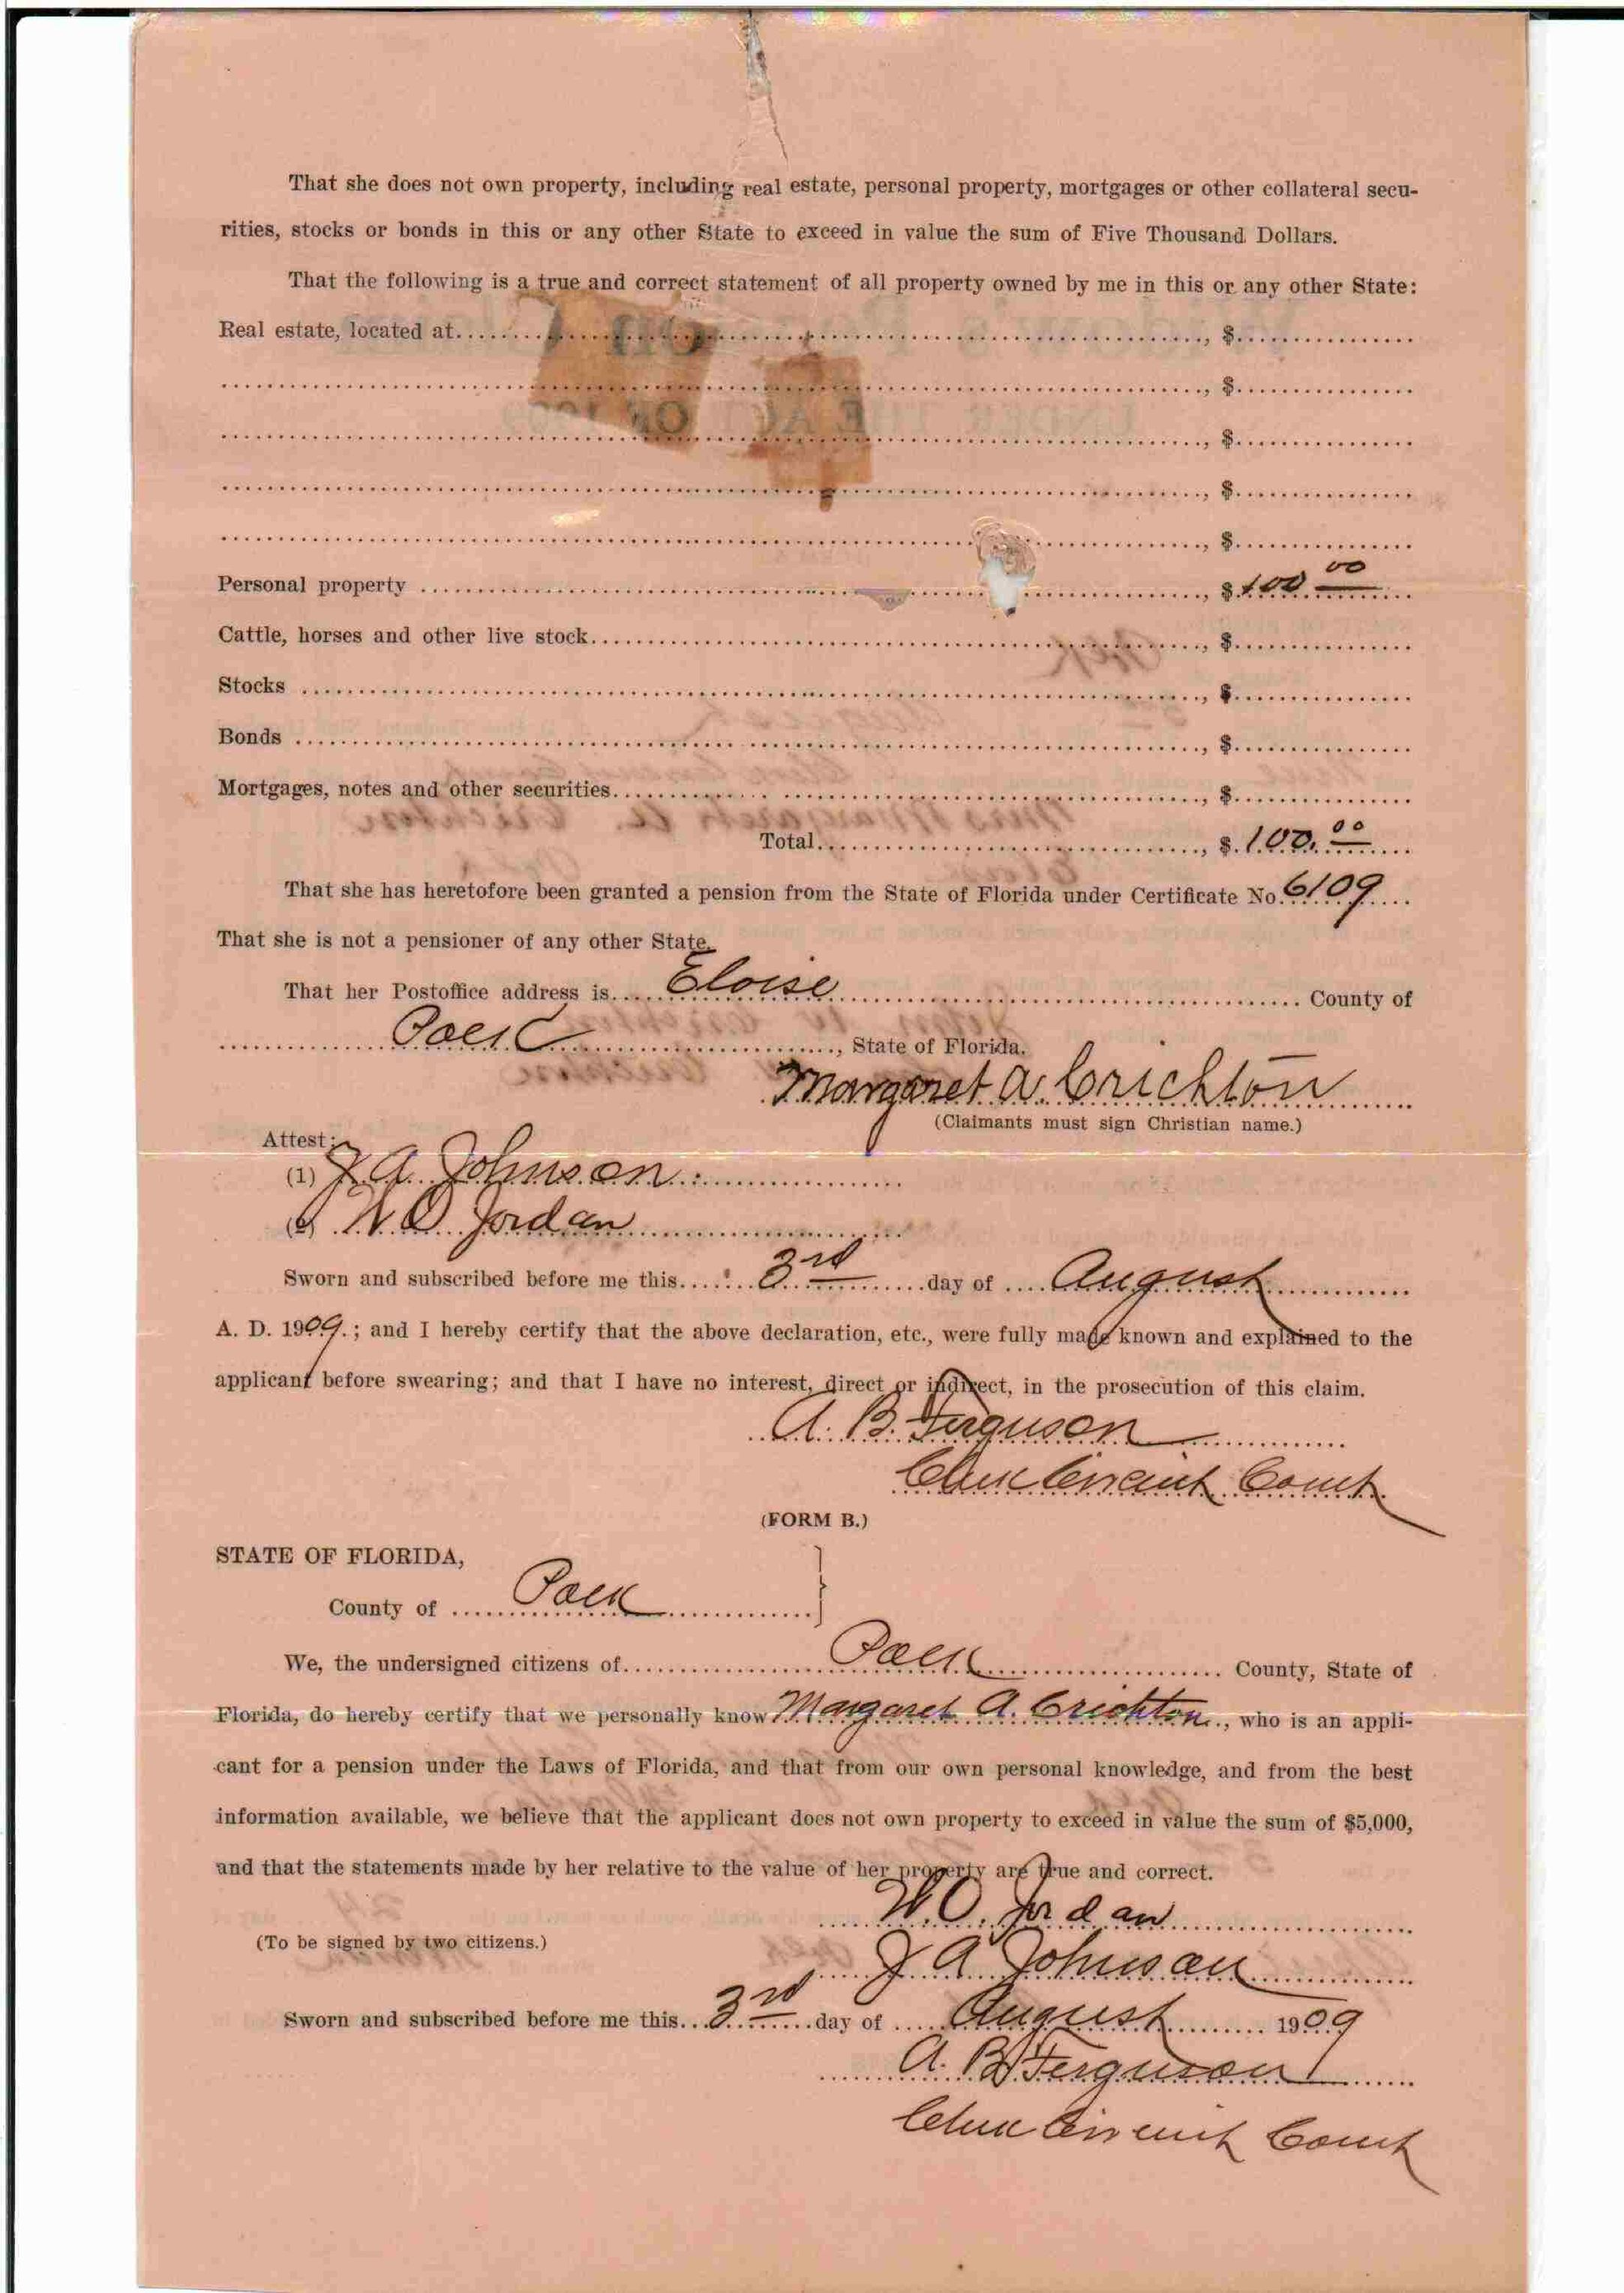 That she does not own property, including real estate, personal property, mortgages or other collateral secu-
rities, stocks or bonds in this or any other State to exceed in value the sum of Five Thousand Dollars.
That the following is a true and correct statement of all property owned by me in this or any other State:
Real estate, located at........, $........
........, $........
........, $........
........, $........
........, $........
Personal property ........, $ 100 00
Cattle, horses and other live stock........, $........
Stocks ........, $........
Bonds ........, $........
Mortgages, notes and other securities........, $........
Total........, $ 100.00
That she has heretofore been granted a pension from the State of Florida under Certificate No. 6109
That she is not a pensioner of any other State.
That her Postoffice address is.... Eloise ........ County of
........ Polk ........, State of Florida.
Margaret A. Crichton
(Claimants must sign Christian name.)
Attest:
(1) J. A. Johnson
(2) W O Jordan
Sworn and subscribed before me this.... 3rd ....day of .... August ....
A. D. 1909.; and I hereby certify that the above declaration, etc., were fully made known and explained to the
applicant before swearing; and that I have no interest, direct or indirect, in the prosecution of this claim.
A. B. Ferguson
Clerk Circuit Court
(FORM B.)
STATE OF FLORIDA,
County of .... Polk ....
We, the undersigned citizens of.... Polk .... County, State of
Florida, do hereby certify that we personally know Margaret A. Crichton, who is an appli-
cant for a pension under the Laws of Florida, and that from our own personal knowledge, and from the best
information available, we believe that the applicant does not own property to exceed in value the sum of $5,000,
and that the statements made by her relative to the value of her property are true and correct.
W. O. Jordan
(To be signed by two citizens.)
J. A. Johnson
Sworn and subscribed before me this.. 3rd ....day of .... August .... 1909
A. B. Ferguson
Clerk Circuit Court